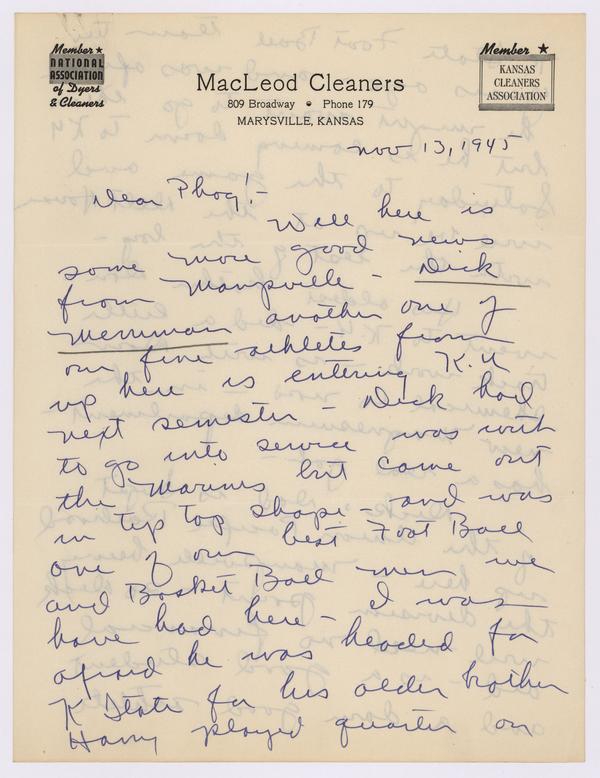 Member ★
NATIONAL
ASSOCIATION
of Dyers
& Cleaners
MacLeod Cleaners
809 Broadway • Phone 179
MARYSVILLE, KANSAS
Member ★
KANSAS
CLEANERS
ASSOCIATION
Nov 13, 1945
Dear Phog! -
Well here is
some more good news
from Marysville - Dick
Merriman another one of
our fine athletes from
up here is entering K.U
next semester - Dick had
to go into service was with
the Marines but came out
in tip top shape - and was
one of our best Foot Ball
and Basket Ball men we
have had here - I was
afraid he was headed for
K State for his older brother
Harry played quarter on